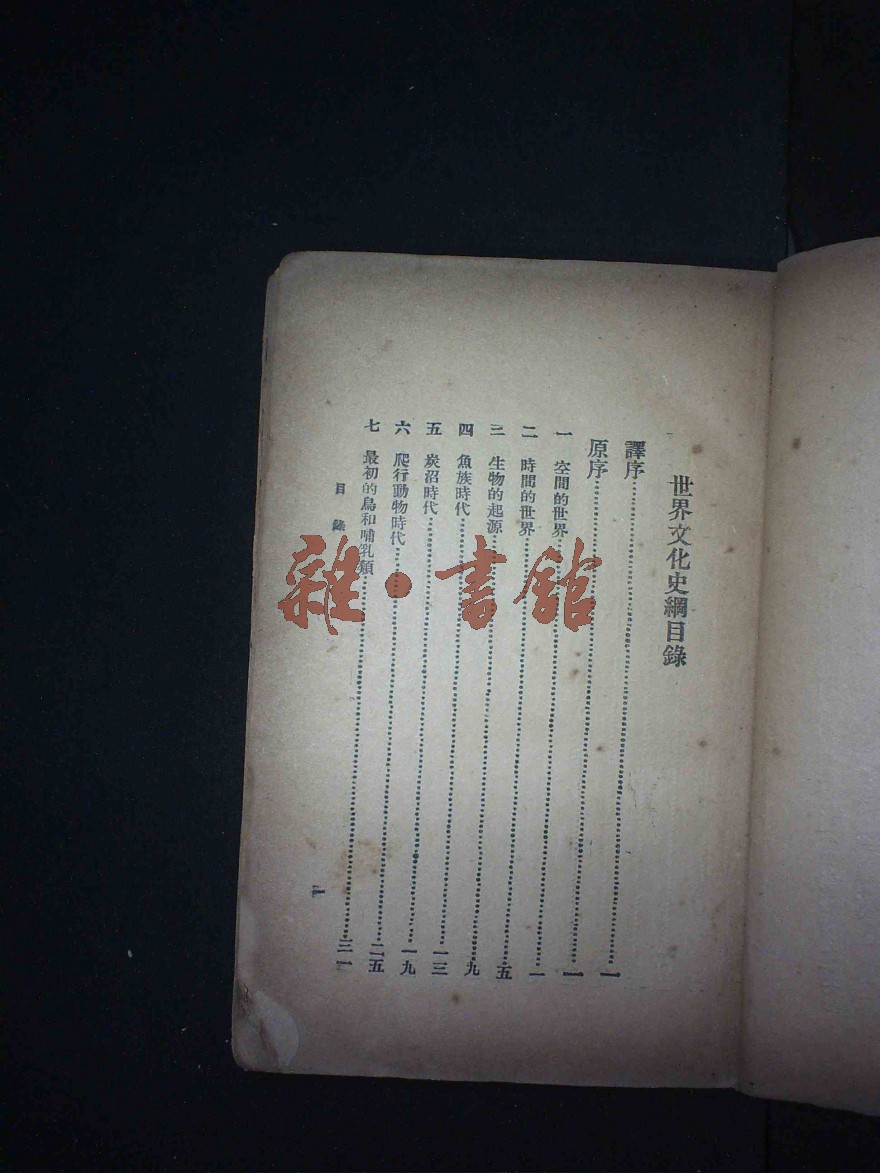 世界文化史綱目錄
譯序 一
原序 一
一 空間的世界 一
二 時間的世界 五
三 生物的起源 九
四 魚族時代 一三
五 炭沼時代 一九
六 爬行動物時代 二五
七 最初的鳥和哺乳類 三一
目錄
雜·書館